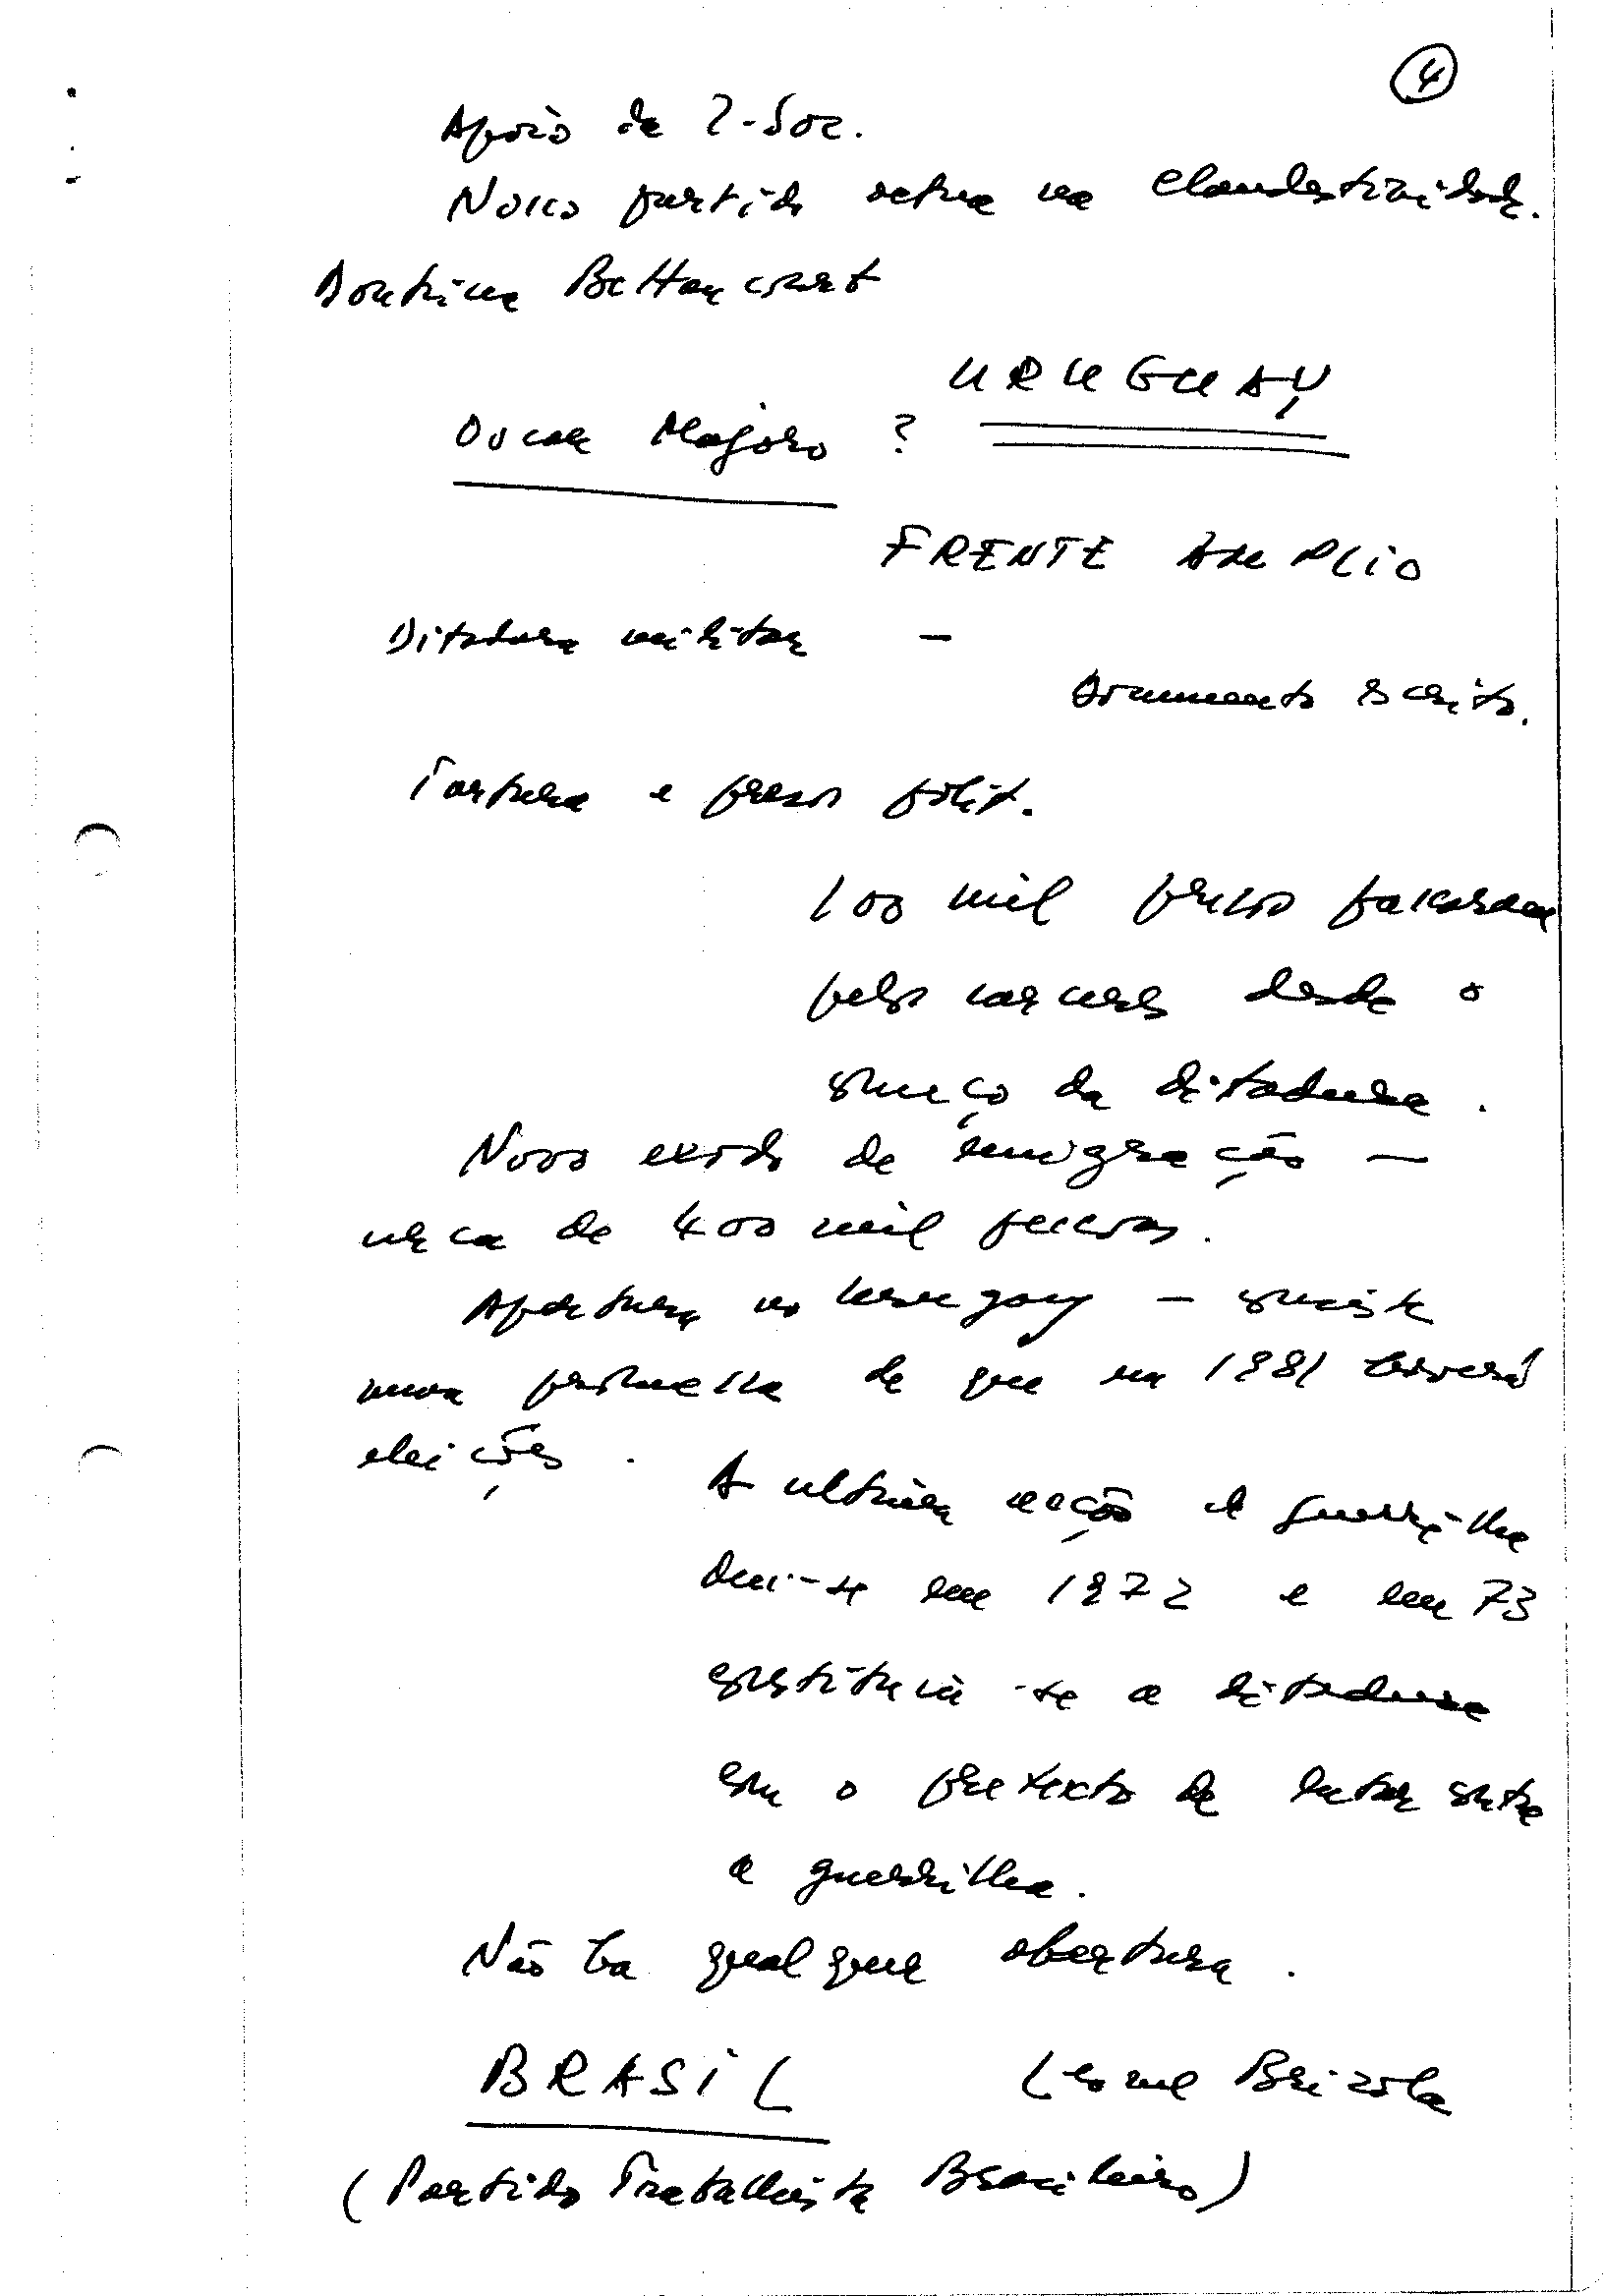 4
Apoio da I. Soc.
Nosso partido actua na clandestinidade.
Doutrina Bettancourt
URUGUAY
Oscar ?
FRENTE AMPLIO
Ditadura militar -
Documento escrito.
Tortura e presos polit.
100 mil presos passaram
pelos carceres desde o
começo da ditadura.
Novo exodo de emigração -
cerca de 400 mil pessoas.
Apertura no Uruguay - consiste
numa promessa de que em 1981 haverá
eleições.
A ultima acção de guerrilha
deu-se em 1972 e em 73
constituiu-se a ditadura
com o pretexto de lutar contra
a guerrilha.
Não ha qualquer abertura.
BRASIL Leonel Brizola
(Partido Trabalhista Brasileiro)